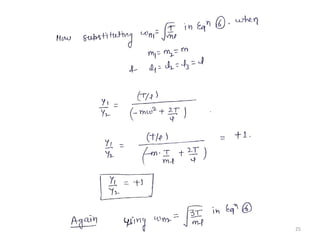 Now substituting ωn₁ = √(T/ml) in Eqⁿ ⑥, when
m₁ = m₂ = m
& l₁ = l₂ = l₃ = l
y₁/y₂ = (T/l) / (-mω² + 2T/l) .
y₁/y₂ = (T/l) / (-m·T/ml + 2T/l) = +1.
y₁/y₂ = +1
Again using ωn₂ = √(3T/ml) in Eqⁿ ⑥
25